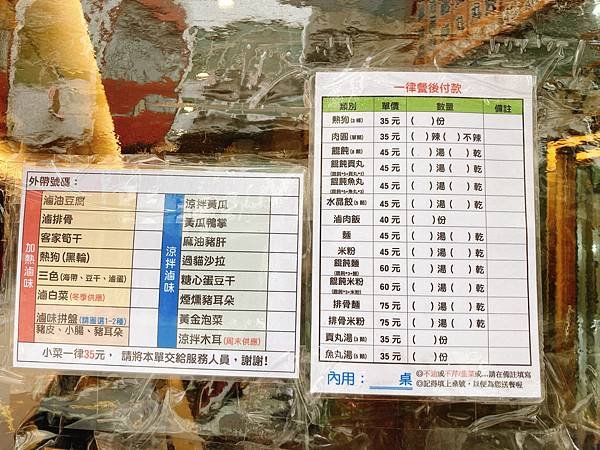 外帶號碼：
加熱滷味
滷油豆腐
滷排骨
客家筍干
熱狗(黑輪)
三色(海帶、豆干、滷蛋)
滷白菜(冬季供應)
滷味拼盤(請圈選1-2種)
豬皮、小腸、豬耳朵
涼拌滷味
涼拌黃瓜
黃瓜鴨掌
麻油豬肝
過貓沙拉
糖心蛋豆干
煙燻豬耳朵
黃金泡菜
涼拌木耳(周末供應)
小菜一律35元， 請將本單交給服務人員，謝謝!
一律餐後付款
類別 單價 數量 備註
熱狗(2條) 35 元 ( )份
肉圓(單顆) 35 元 ( )辣 ( )不辣
餛飩(8顆) 45 元 ( )湯( )乾
餛飩貢丸 45 元 ( )湯( )乾
餛飩魚丸 45 元 ( )湯( )乾
水晶餃(5顆) 45 元 ( )湯( )乾
滷肉飯 40 元 ( )份
麵 45 元 ( )湯( )乾
米粉 45 元 ( )湯( )乾
餛飩麵 60 元 ( )湯( )乾
餛飩米粉 60 元 ( )湯( )乾
排骨麵 75 元 ( )湯( )乾
排骨米粉 75 元 ( )湯( )乾
貢丸湯(3顆) 35 元 ( )份
魚丸湯(3顆) 35 元 ( )份
內用： 桌
◎不油或不芹/韭菜或...請在備註填寫
◎記得填上桌號，以便為您送餐喔